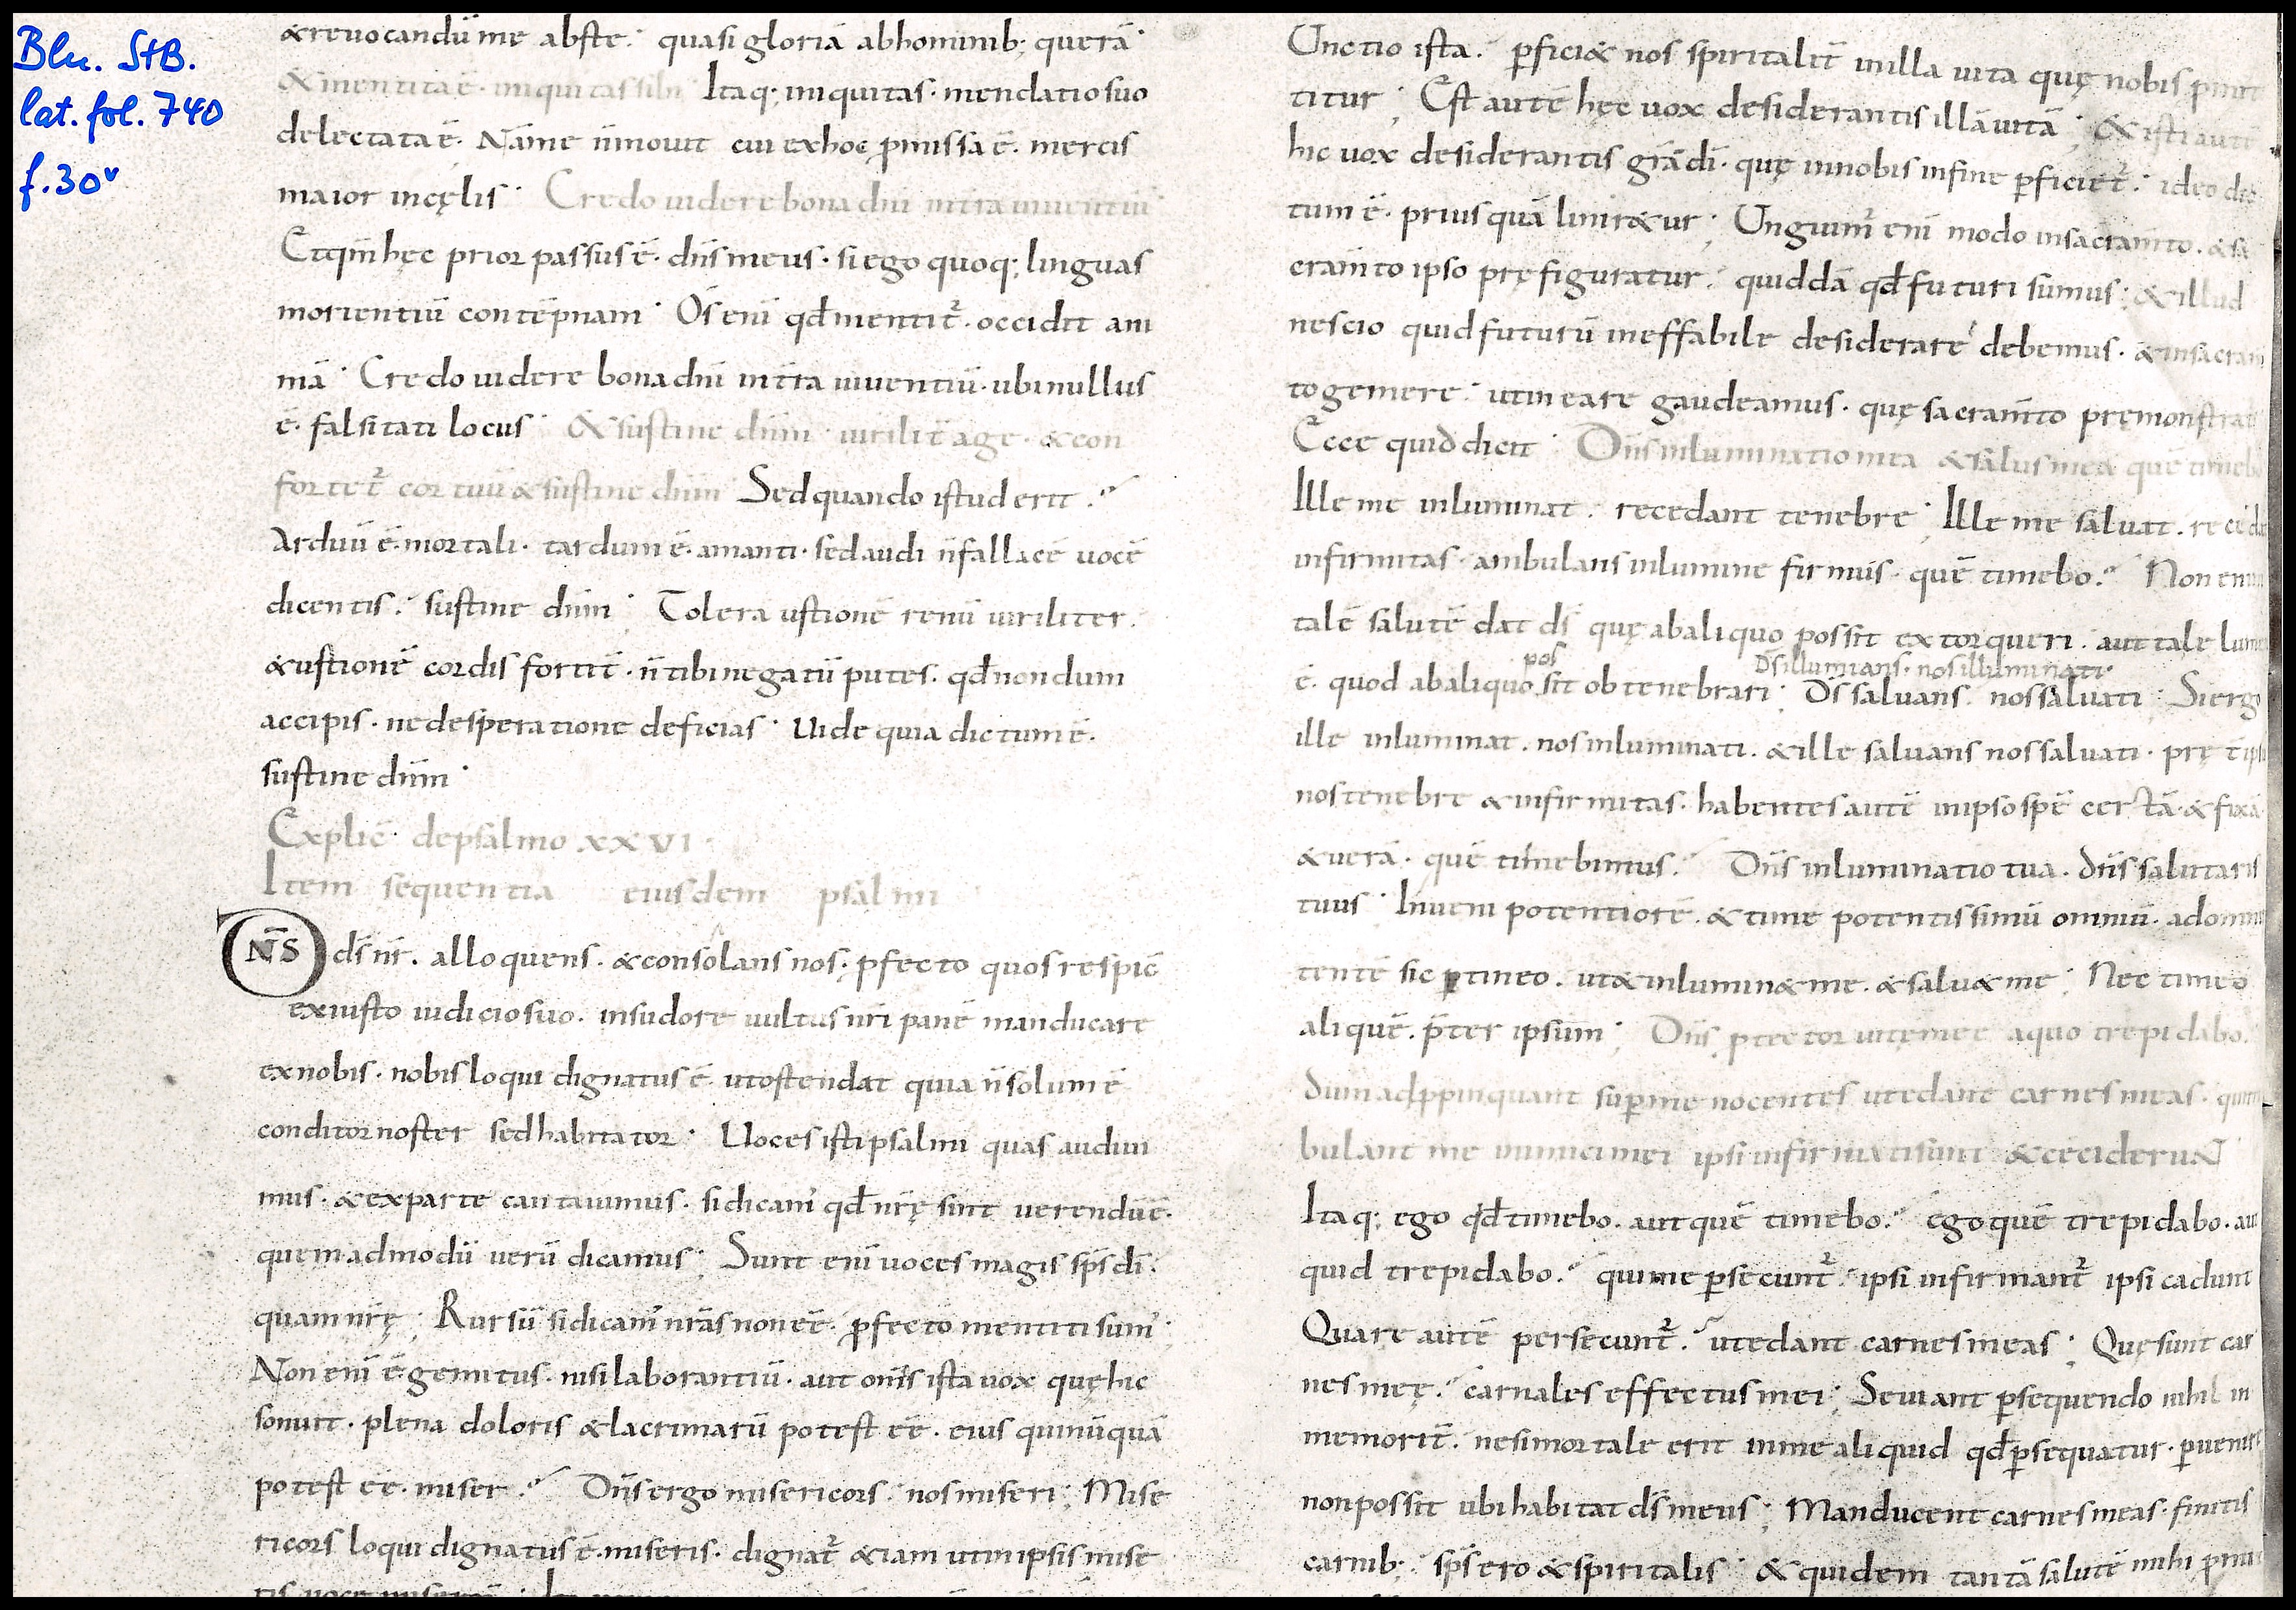 Bln. StB.
lat. fol. 740
f. 30v
&reuocandū me abste. quasi gloriā ab hominib; querā
& mentita ē. iniquitas sibi Itaq; iniquitas. mendatio suo
delectata ē. Nā me n̄ mouit cui ex hoc p̄missa ē. mercis
maior in cęlis Credo uidere bona dn̄i in tr̄a uiuentiū
Et qm̄ hęc prior passus ē. dn̄s meus. si ego quoq; linguas
morientiū contēpnam Os enī qđ mentit᷑. occidit ani
mā Credo uidere bona dn̄i in tr̄a uiuentiū. ubi nullus
ē. falsitati locus & sustine dn̄m uirilit̄ age. & con
fortet᷑ cor tuū & sustine dn̄m Sed quando istud erit.
Arduū ē. mortali. tardum ē. amanti. sed audi n̄ fallacē uocē
dicentis. sustine dn̄m Tolera ustionē renū uiriliter.
& ustionē cordis fortit̄. n̄ tibi negatū putes. qđ nondum
accipis. ne desperatione deficias Uide quia dictum ē.
sustine dn̄m
Explic̄ de psalmo xxvi.
Item sequentia eiusdem psalmi
DN̄S ds̄ nr̄. alloquens. & consolans nos. pfecto quos respic̄
ex iusto iudicio suo. in sudore uultus nr̄i panē manducare
ex nobis. nobis loqui dignatus ē. ut ostendat quia n̄ solum ē
conditor noster sed habitator Uoces isti psalmi quas audiui
mus. & ex parte cantauimus. si dicam᷑ qđ nr̄ę sint uerendū ē.
quemadmodū uerū dicamus Sunt enī uoces magis sp̄s dī.
quam nr̄ę Rursū si dicam᷑ nr̄as non eē. p̄fecto mentiti sum᷑
Non enī ē gemitus. nisi laborantiū. aut om̄s ista uox quę hic
sonuit. plena doloris & lacrimarū potest eē. eius qui nūquā
potest eē. miser. Dn̄s ergo misericors nos miseri Mise
ricors loqui dignatus ē miseris. dignat᷑ &iam uti in ipsis mise
Unctio ista. p̄fici& nos spiritalit̄ in illa uita quę nobis
titur Est autē hęc uox desiderantis illā uitā & isti autē
hic uox desiderantis gr̄a dī. quę in nobis in fine p̄ficiet᷑. ideo
tum ē. prius quā linir&ur Unguim᷑ enī modo in sacram̄to. & sa
cram̄to ipso pręfiguratur. quiddā qđ futuri sumus & illud
nescio quid futurū ineffabile desiderare debemus. & in sacram̄
to gemere. ut in ea re gaudeamus. quę sacram̄to pręmonstrat
Ecce quid dicit Dn̄s inluminatio mea & salus mea quē timebo
Ille me inluminat. recedant tenebre Ille me saluat.
infirmitas. ambulans in lumine firmus. quē timebo. Non enim
talē salutē dat ds̄ quę ab aliquo possit extorqueri. aut tale
pos Ds illuminans. nos illuminati
ē. quod ab aliquo sit obtenebrari Ds̄ saluans nos saluati Si ergo
ille inluminat. nos inluminati. & ille saluans nos saluati. pręt̄
nos tenebre & infirmitas. habentes autē in ipso spē certā. & fixā
& uerā. quē timebimus. Dn̄s inluminatio tua. dn̄s salutaris
tuus Inueni potentiorē. & time potentissimū omniū. ab omni
tentē sic timeo. ut & inlumin& me. & salu& me Nec timeo
aliquē. p̄ter ipsum Dn̄s ptector uitę meę a quo trepidabo.
dum adppinquant sup̄ me nocentes ut edant carnes meas. qui
bulant me inimici mei ipsi infirmati sunt & ceciderunt
Itaq; ego qđ timebo. aut quē timebo. ego quē trepidabo. aut
quid trepidabo. qui me p̄secunt᷑. ipsi infirmant᷑ ipsi cadunt
Quare autē persecunt᷑. ut edant carnes meas Quę sunt car
nes meę. carnales effectus mei Seuiant p̄sequendo nihil in
me morit᷑. nesi mortale erit in me aliquid qđ p̄sequatur. p̄uenire
non possit ubi habitat ds̄ meus Manducent carnes meas. finitis
carnib; sp̄s ero & spiritalis & quidem tantā salutē mihi